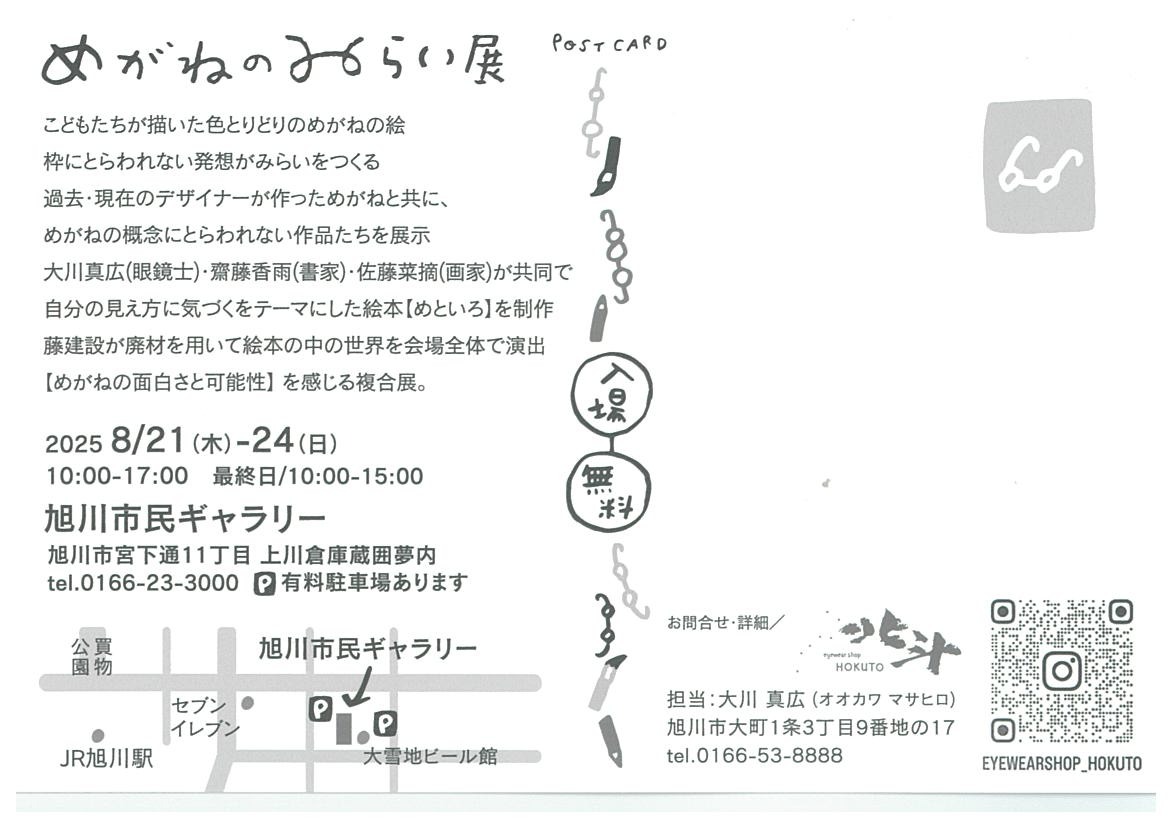 めがねのみらい展
こどもたちが描いた色とりどりのめがねの絵
枠にとらわれない発想がみらいをつくる
過去·現在のデザイナーが作っためがねと共に、
めがねの概念にとらわれない作品たちを展示
大川真広(眼鏡士)·齋藤香雨(書家)·佐藤菜摘(画家)が共同で
自分の見え方に気づくをテーマにした絵本【めといろ】を制作
藤建設が廃材を用いて絵本の中の世界を会場全体で演出
【めがねの面白さと可能性】を感じる複合展。
2025 8/21（木）-24（日）
10:00-17:00 最終日/10:00-15:00
旭川市民ギャラリー
旭川市宮下通11丁目 上川倉庫蔵囲夢内
tel.0166-23-3000 P 有料駐車場あります
公園
買物
旭川市民ギャラリー
セブン
イレブン
P
P
JR旭川駅
大雪地ビール館
POST CARD
入場
無料
お問合せ·詳細／
eyewear shop
HOKUTO
担当：大川 真広（オオカワ マサヒロ）
旭川市大町1条3丁目9番地の17
tel.0166-53-8888
EYEWEARSHOP_HOKUTO